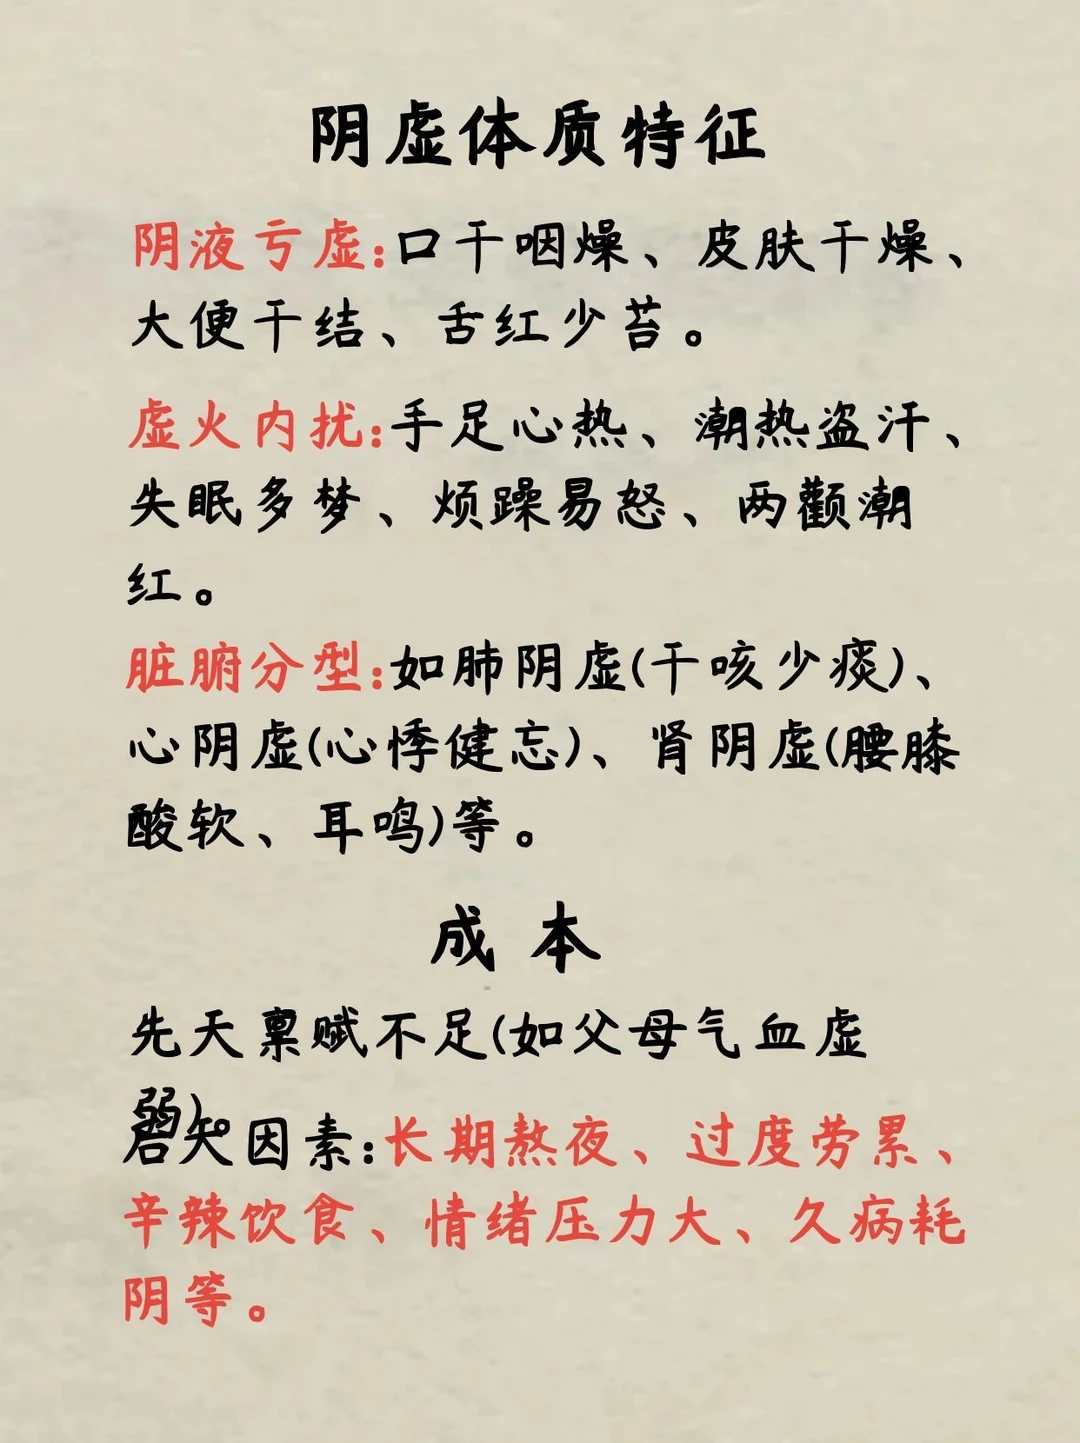 阴虚体质特征
阴液亏虚:口干咽燥、皮肤干燥、
大便干结、舌红少苔。
虚火内扰:手足心热、潮热盗汗、
失眠多梦、烦躁易怒、两颧潮
红。
脏腑分型:如肺阴虚(干咳少痰)、
心阴虚(心悸健忘)、肾阴虚(腰膝
酸软、耳鸣)等。
成本
先天禀赋不足(如父母气血虚
弱)。
因素:长期熬夜、过度劳累、
辛辣饮食、情绪压力大、久病耗
阴等。